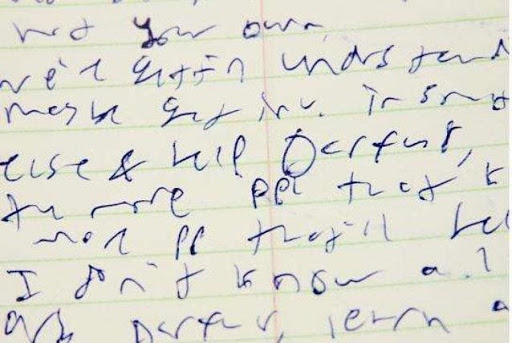 not your own
get in understand
maybe get inv. in smt
else & help Darfur,
the more ppl that k
more pp that'll hel
I don't know al
Darfur, learn a